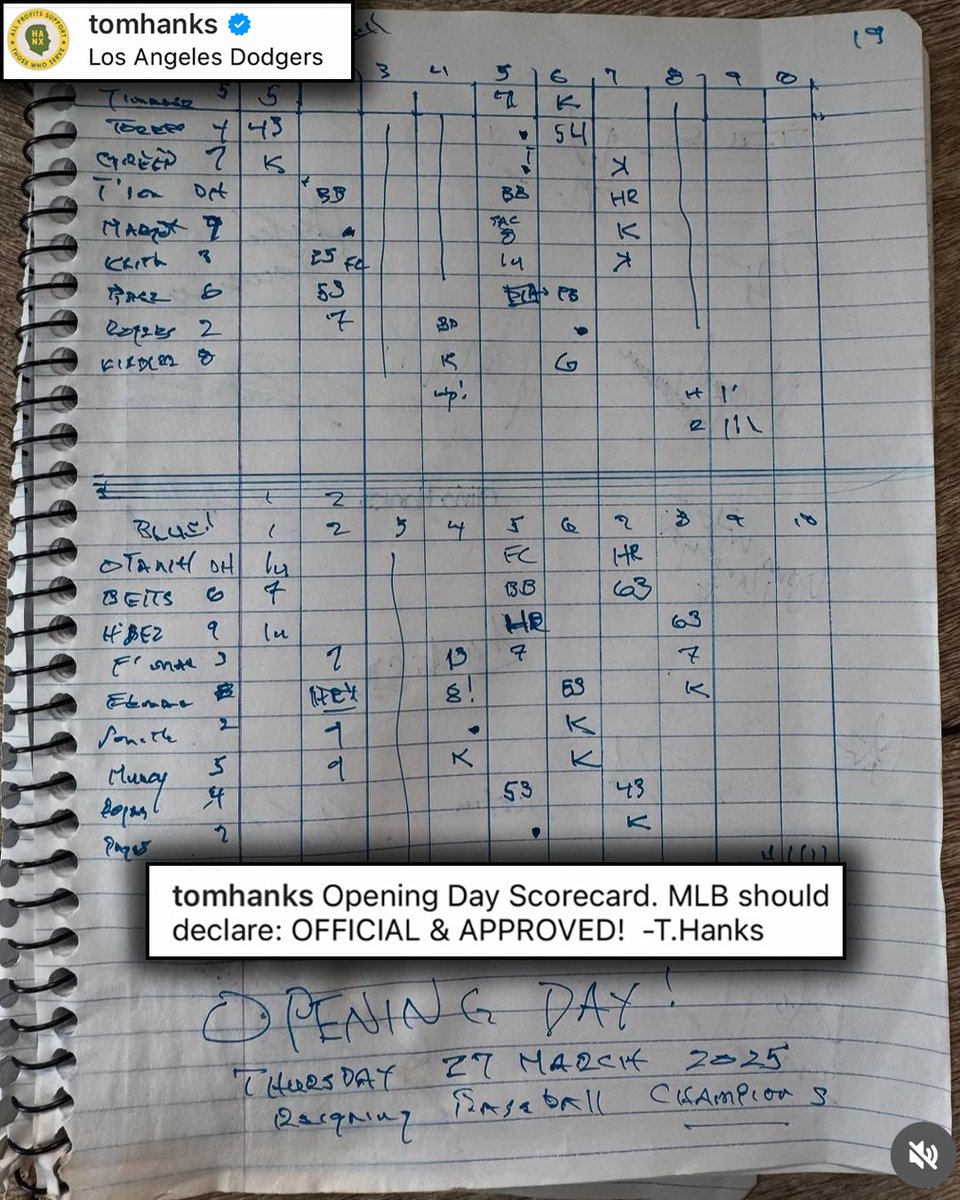 ALL PROFITS SUPPORT THOSE WHO SERVE
HANX
tomhanks
Los Angeles Dodgers
19
3 4 5 6 7 8 9 10
5 5 7 K
Torres 4 43 • 54
GREEN 7 K K
T'son DH BB BB HR
Margot 9 SAC 8 K
Keith 3 25 FC 1u K
Baez 6 53
Rogers 2 7 BB •
8 K 6
wp! H
R
1 2
BLUE! 1 2 3 4 5 6 7 8 9 10
OTANI DH 1u FC HR
BETTS 6 7 BB 63
H'DEZ 9 1u HR 63
F'man 3 7 13 7 7
Edman 8! 53 K
Smith 2 9 • K
Muncy 5 9 K K
Rojas 4 53 43
Pages 7 • K
tomhanks Opening Day Scorecard. MLB should
declare: OFFICIAL & APPROVED! -T.Hanks
OPENING DAY!
THURSDAY 27 MARCH 2025
Reigning Baseball CHAMPIONS